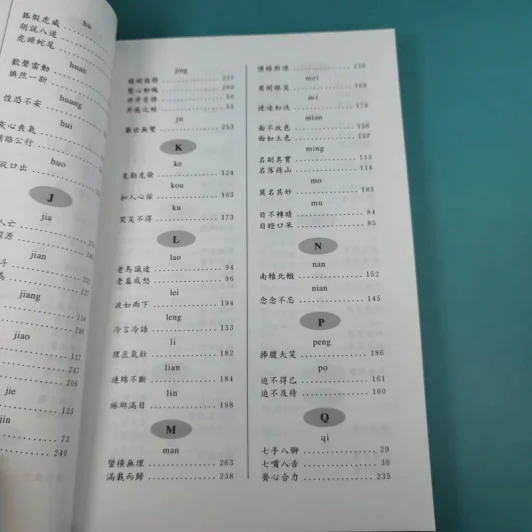 hu
狐假虎威
胡說八道
虎頭蛇尾
huan
歡聲雷動
煥然一新
huang
惶恐不安
hui
灰心喪氣
賄賂公行
huo
J
jia
jian
jiang
jiao
jie
jin
jing
兢兢業業 ... 237
驚心動魄 ... 260
井井有條 ... 50
井底之蛙 ... 51
ju
舉世無雙 ... 253
K
ke
克勤克儉 ... 124
kou
扣人心弦 ... 103
ku
哭笑不得 ... 173
L
lao
老馬識途 ... 94
老羞成怒 ... 96
lei
淚如雨下 ... 194
leng
冷言冷語 ... 133
li
理直氣壯 ... 182
lian
連綿不斷 ... 184
lin
琳瑯滿目 ... 198
M
man
蠻橫無理 ... 263
滿載而歸 ... 238
mei
眉開眼笑 ... 169
mi
迷途知返 ... 178
mian
面不改色 ... 156
面如土色 ... 157
ming
名副其實 ... 113
名落孫山 ... 114
mo
莫名其妙 ... 183
mu
目不轉睛 ... 84
目瞪口呆 ... 85
N
nan
南轅北轍 ... 152
nian
念念不忘 ... 145
P
peng
捧腹大笑 ... 186
po
迫不得已 ... 161
迫不及待 ... 160
Q
qi
七手八腳 ... 29
七嘴八舌 ... 30
齊心合力 ... 235